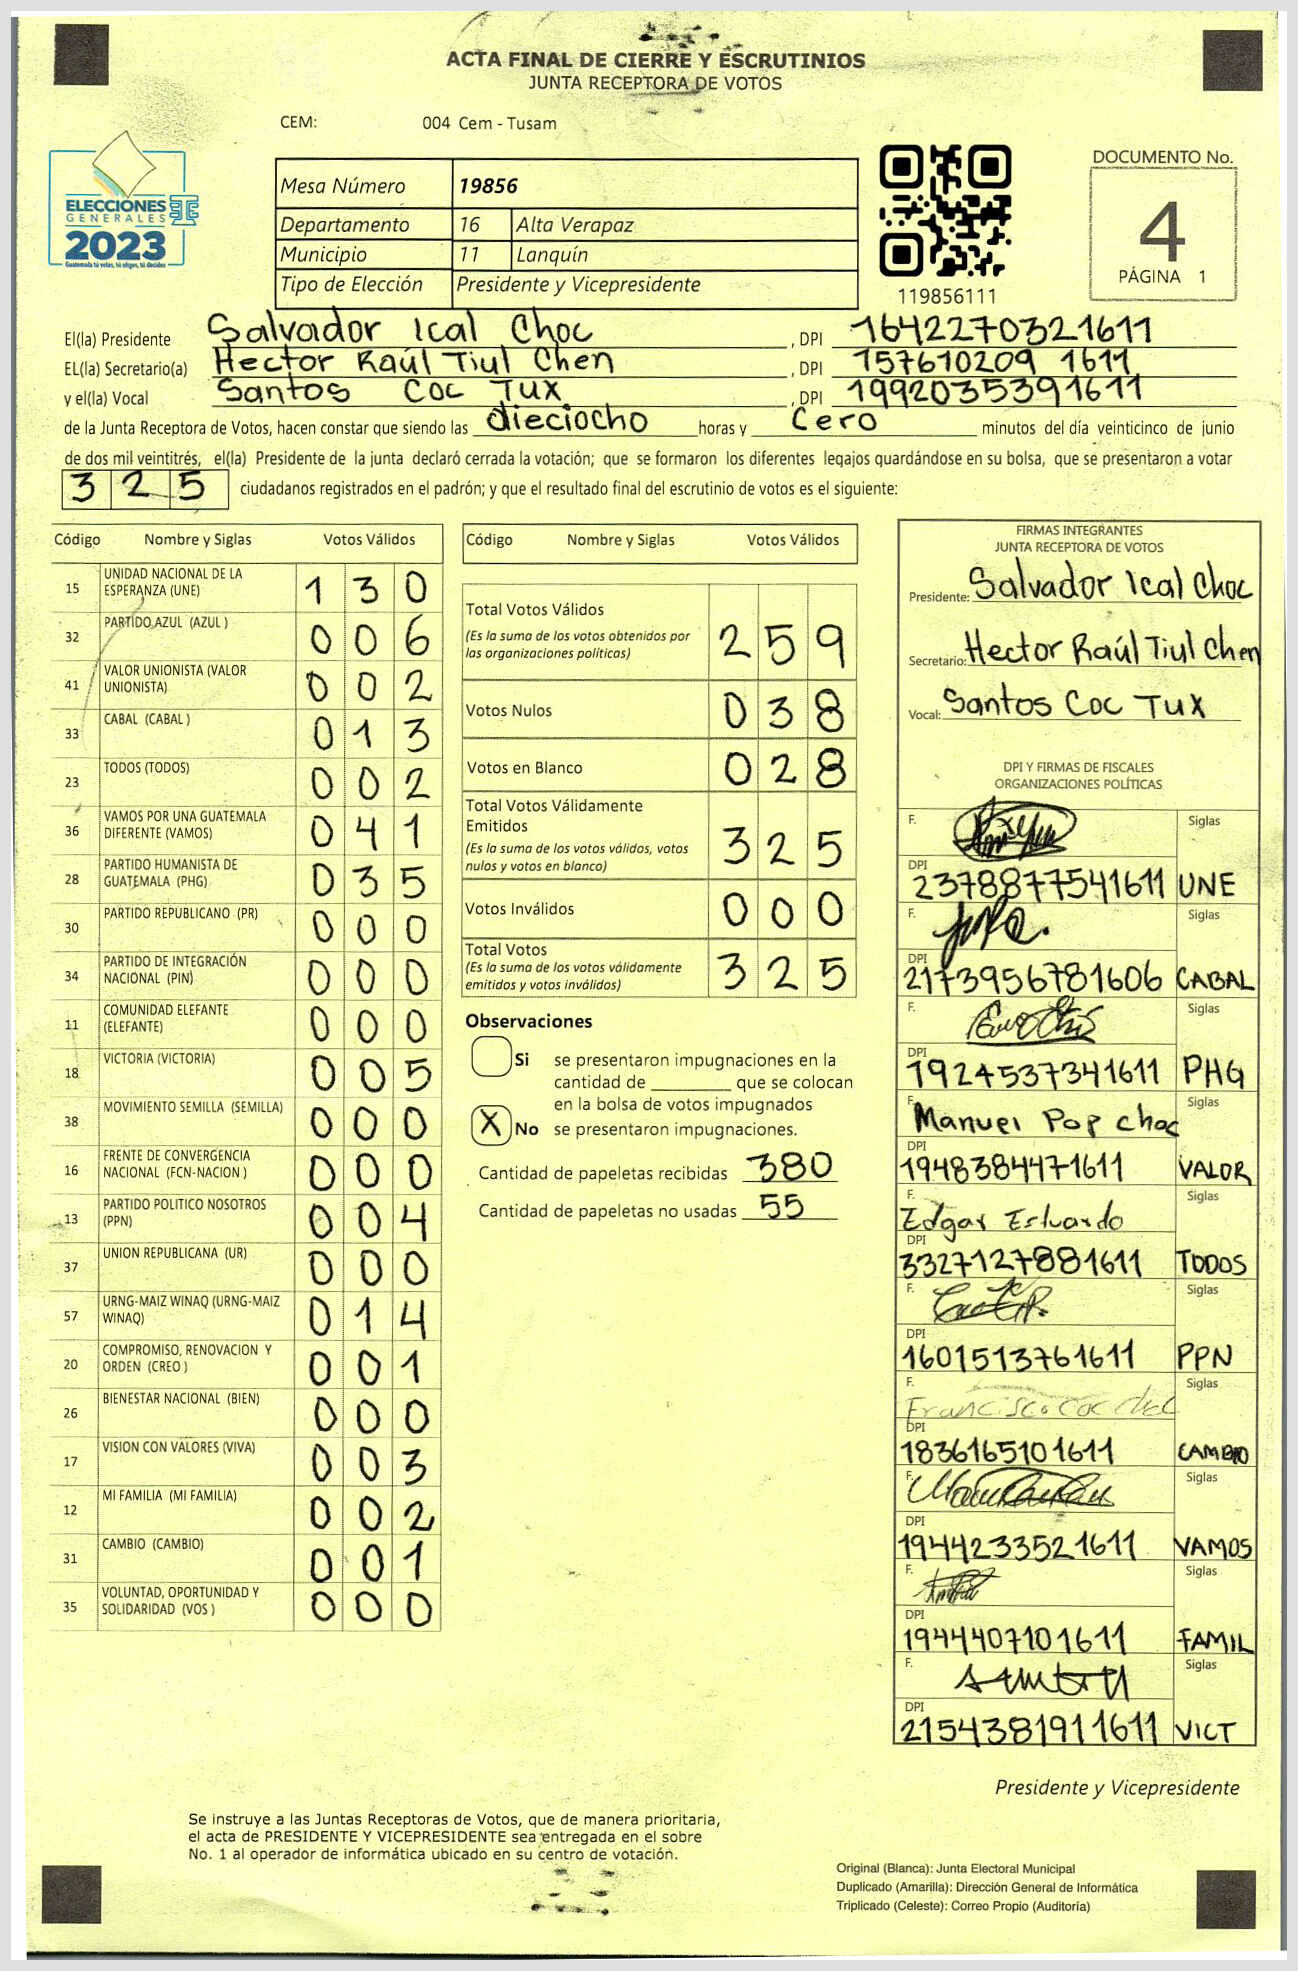 ACTA FINAL DE CIERRE Y ESCRUTINIOS
JUNTA RECEPTORA DE VOTOS
CEM: 004 Cem - Tusam
ELECCIONES
GENERALES
2023
Guatemala tú votas, tú eliges, tú decides
Mesa Número 19856
Departamento 16 Alta Verapaz
Municipio 11 Lanquín
Tipo de Elección Presidente y Vicepresidente
119856111
DOCUMENTO No.
4
PÁGINA 1
El(la) Presidente Salvador Ical Choc , DPI 1642270321611
EL(la) Secretario(a) Hector Raúl Tiul Chen , DPI 157610209 1611
y el(la) Vocal Santos Coc Tux , DPI 1992035391611
de la Junta Receptora de Votos, hacen constar que siendo las dieciocho horas y Cero minutos del día veinticinco de junio
de dos mil veintitrés, el(la) Presidente de la junta declaró cerrada la votación; que se formaron los diferentes legajos guardándose en su bolsa, que se presentaron a votar
325 ciudadanos registrados en el padrón; y que el resultado final del escrutinio de votos es el siguiente:
Código Nombre y Siglas Votos Válidos
15 UNIDAD NACIONAL DE LA ESPERANZA (UNE) 1 3 0
32 PARTIDO AZUL (AZUL ) 0 0 6
41 VALOR UNIONISTA (VALOR UNIONISTA) 0 0 2
33 CABAL (CABAL ) 0 1 3
23 TODOS (TODOS) 0 0 2
36 VAMOS POR UNA GUATEMALA DIFERENTE (VAMOS) 0 4 1
28 PARTIDO HUMANISTA DE GUATEMALA (PHG) 0 3 5
30 PARTIDO REPUBLICANO (PR) 0 0 0
34 PARTIDO DE INTEGRACIÓN NACIONAL (PIN) 0 0 0
11 COMUNIDAD ELEFANTE (ELEFANTE) 0 0 0
18 VICTORIA (VICTORIA) 0 0 5
38 MOVIMIENTO SEMILLA (SEMILLA) 0 0 0
16 FRENTE DE CONVERGENCIA NACIONAL (FCN-NACION ) 0 0 0
13 PARTIDO POLITICO NOSOTROS (PPN) 0 0 4
37 UNION REPUBLICANA (UR) 0 0 0
57 URNG-MAIZ WINAQ (URNG-MAIZ WINAQ) 0 1 4
20 COMPROMISO, RENOVACION Y ORDEN (CREO ) 0 0 1
26 BIENESTAR NACIONAL (BIEN) 0 0 0
17 VISION CON VALORES (VIVA) 0 0 3
12 MI FAMILIA (MI FAMILIA) 0 0 2
31 CAMBIO (CAMBIO) 0 0 1
35 VOLUNTAD, OPORTUNIDAD Y SOLIDARIDAD (VOS ) 0 0 0
Código Nombre y Siglas Votos Válidos
Total Votos Válidos 2 5 9
(Es la suma de los votos obtenidos por
las organizaciones políticas)
Votos Nulos 0 3 8
Votos en Blanco 0 2 8
Total Votos Válidamente
Emitidos 3 2 5
(Es la suma de los votos válidos, votos
nulos y votos en blanco)
Votos Inválidos 0 0 0
Total Votos 3 2 5
(Es la suma de los votos válidamente
emitidos y votos inválidos)
Observaciones
Si se presentaron impugnaciones en la
cantidad de ________ que se colocan
en la bolsa de votos impugnados
X No se presentaron impugnaciones.
Cantidad de papeletas recibidas 380
Cantidad de papeletas no usadas 55
FIRMAS INTEGRANTES
JUNTA RECEPTORA DE VOTOS
Presidente: Salvador Ical Choc
Secretario: Hector Raúl Tiul Chen
Vocal: Santos Coc Tux
DPI Y FIRMAS DE FISCALES
ORGANIZACIONES POLÍTICAS
F. Siglas
DPI
2378877541611 UNE
F. Siglas
DPI
2173956781606 CABAL
F. Siglas
DPI
1924537341611 PHG
F. Manuel Pop choc Siglas
DPI
1948384471611 VALOR
F. Edgar Estuardo Siglas
DPI
3327127881611 TODOS
F. Siglas
DPI
1601513761611 PPN
F. Francisco Coc Siglas
DPI
1836165101611 CAMBIO
F. Siglas
DPI
1944233521611 VAMOS
F. Siglas
DPI
1944407101611 FAMIL
F. Siglas
DPI
2154381911611 VICT
Presidente y Vicepresidente
Se instruye a las Juntas Receptoras de Votos, que de manera prioritaria,
el acta de PRESIDENTE Y VICEPRESIDENTE sea entregada en el sobre
No. 1 al operador de informática ubicado en su centro de votación.
Original (Blanca): Junta Electoral Municipal
Duplicado (Amarilla): Dirección General de Informática
Triplicado (Celeste): Correo Propio (Auditoría)